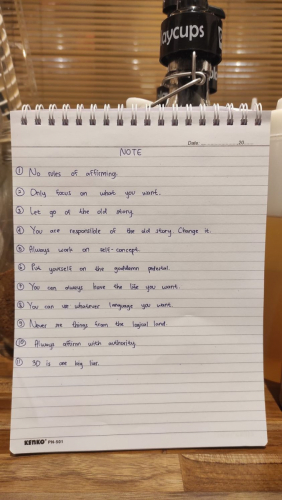 aycups
Date 20
NOTE
① No rules of affirming.
② Only focus on what you want.
③ Let go of the old story.
④ You are responsible of the old story. Change it.
⑤ Always work on self-concept.
⑥ Put yourself on the goddamn pedestal.
⑦ You can always have the life you want.
⑧ You can use whatever language you want.
⑨ Never see things from the logical land.
⑩ Always affirm with authority.
⑪ 3D is one big liar.
KENKO PN-501